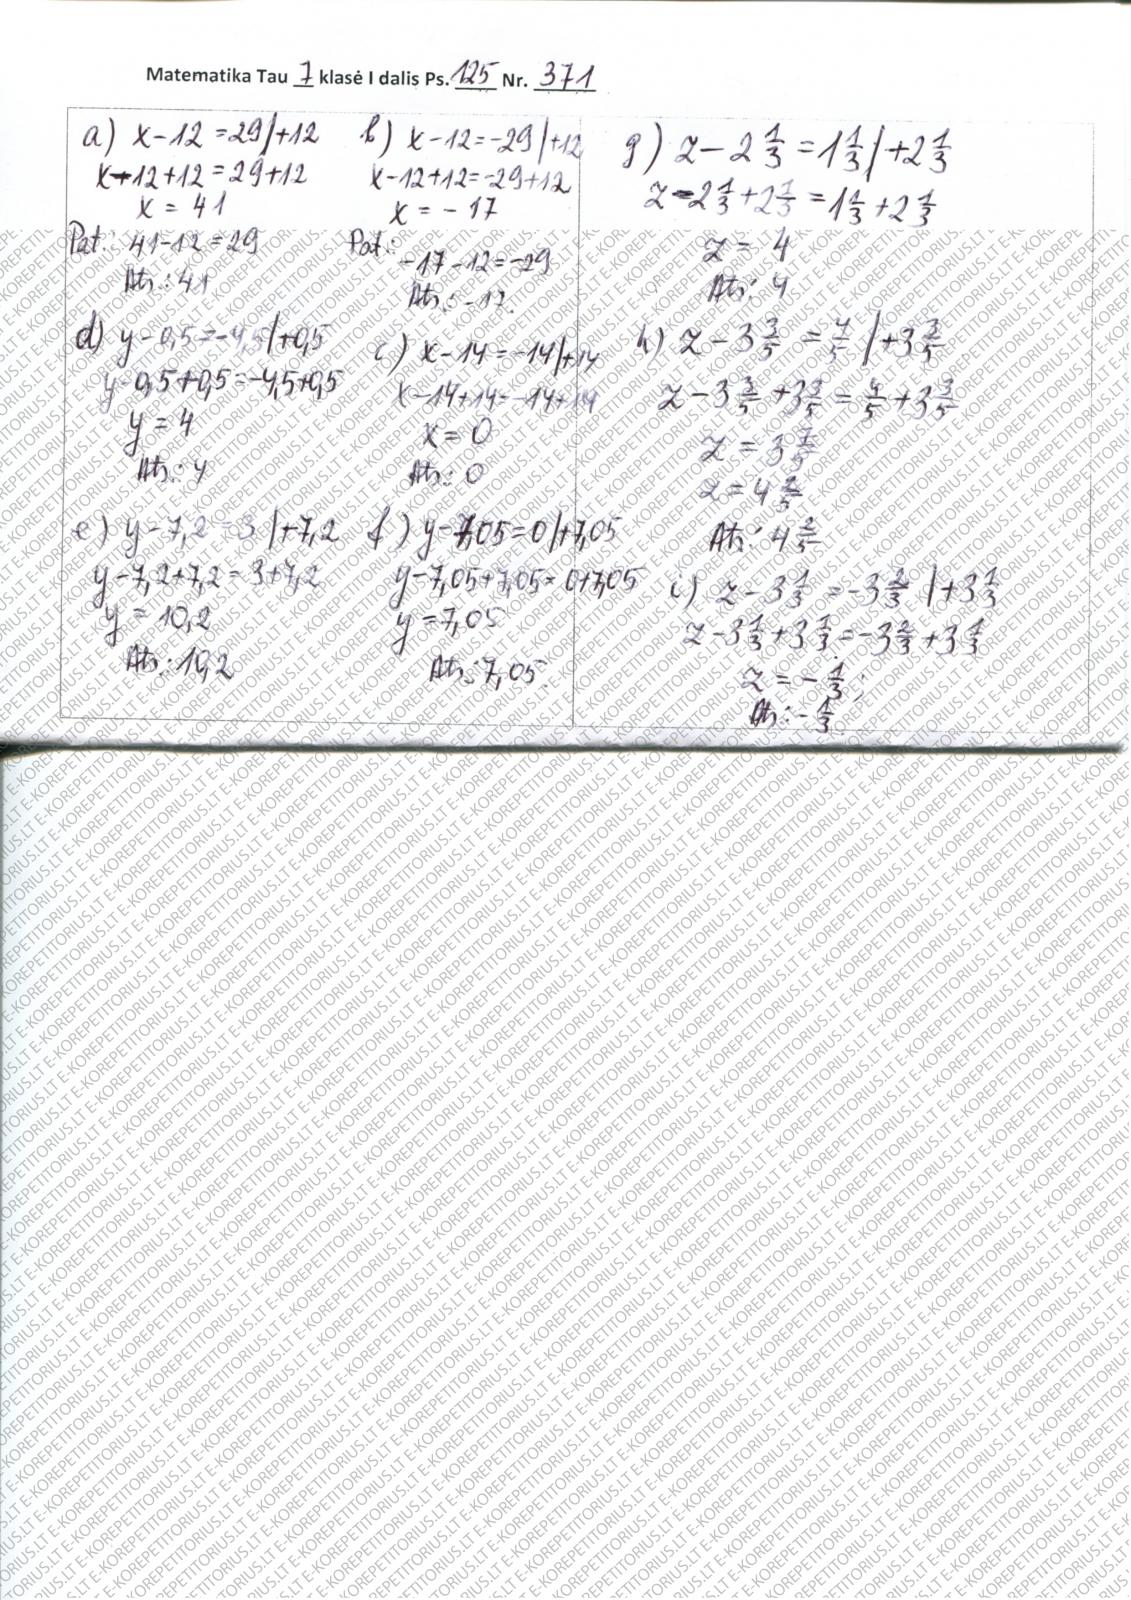 Matematika Tau 7 klasė I dalis Ps. 125 Nr. 371
a) x-12=29|+12
x-12+12=29+12
x=41
Pat.: 41-12=29
Ats.: 41
b) x-12=-29|+12
x-12+12=-29+12
x=-17
Pat.:
-17-12=-29
Ats.: -17.
d) y-0,5=-4,5|+0,5
y-0,5+0,5=-4,5+0,5
y=4
Ats.: 4
c) x-14=-14|+14
x-14+14=-14+14
x=0
Ats.: 0
e) y-7,2=3|+7,2
y-7,2+7,2=3+7,2
y=10,2
Ats.: 10,2
f) y-7,05=0|+7,05
y-7,05+7,05=0+7,05
y=7,05
Ats.: 7,05.
g) z-2 1/3=1 1/3|+2 1/3
z-2 1/3+2 1/3=1 1/3+2 1/3
z=4
Ats.: 4
h) z-3 3/5=4/5|+3 3/5
z-3 3/5+3 3/5=4/5+3 3/5
z=3 7/5
z=4 2/5
Ats.: 4 2/5
i) z-3 1/3=-3 2/3|+3 1/3
z-3 1/3+3 1/3=-3 2/3+3 1/3
z=-1/3;
Ats.: -1/3.
E-KOREPETITORIUS.LT